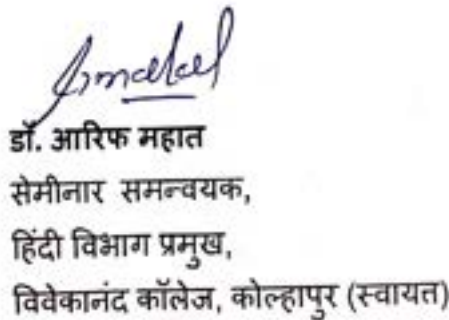 डॉ. आरिफ महात
सेमीनार समन्वयक,
हिंदी विभाग प्रमुख,
विवेकानंद कॉलेज, कोल्हापुर (स्वायत)